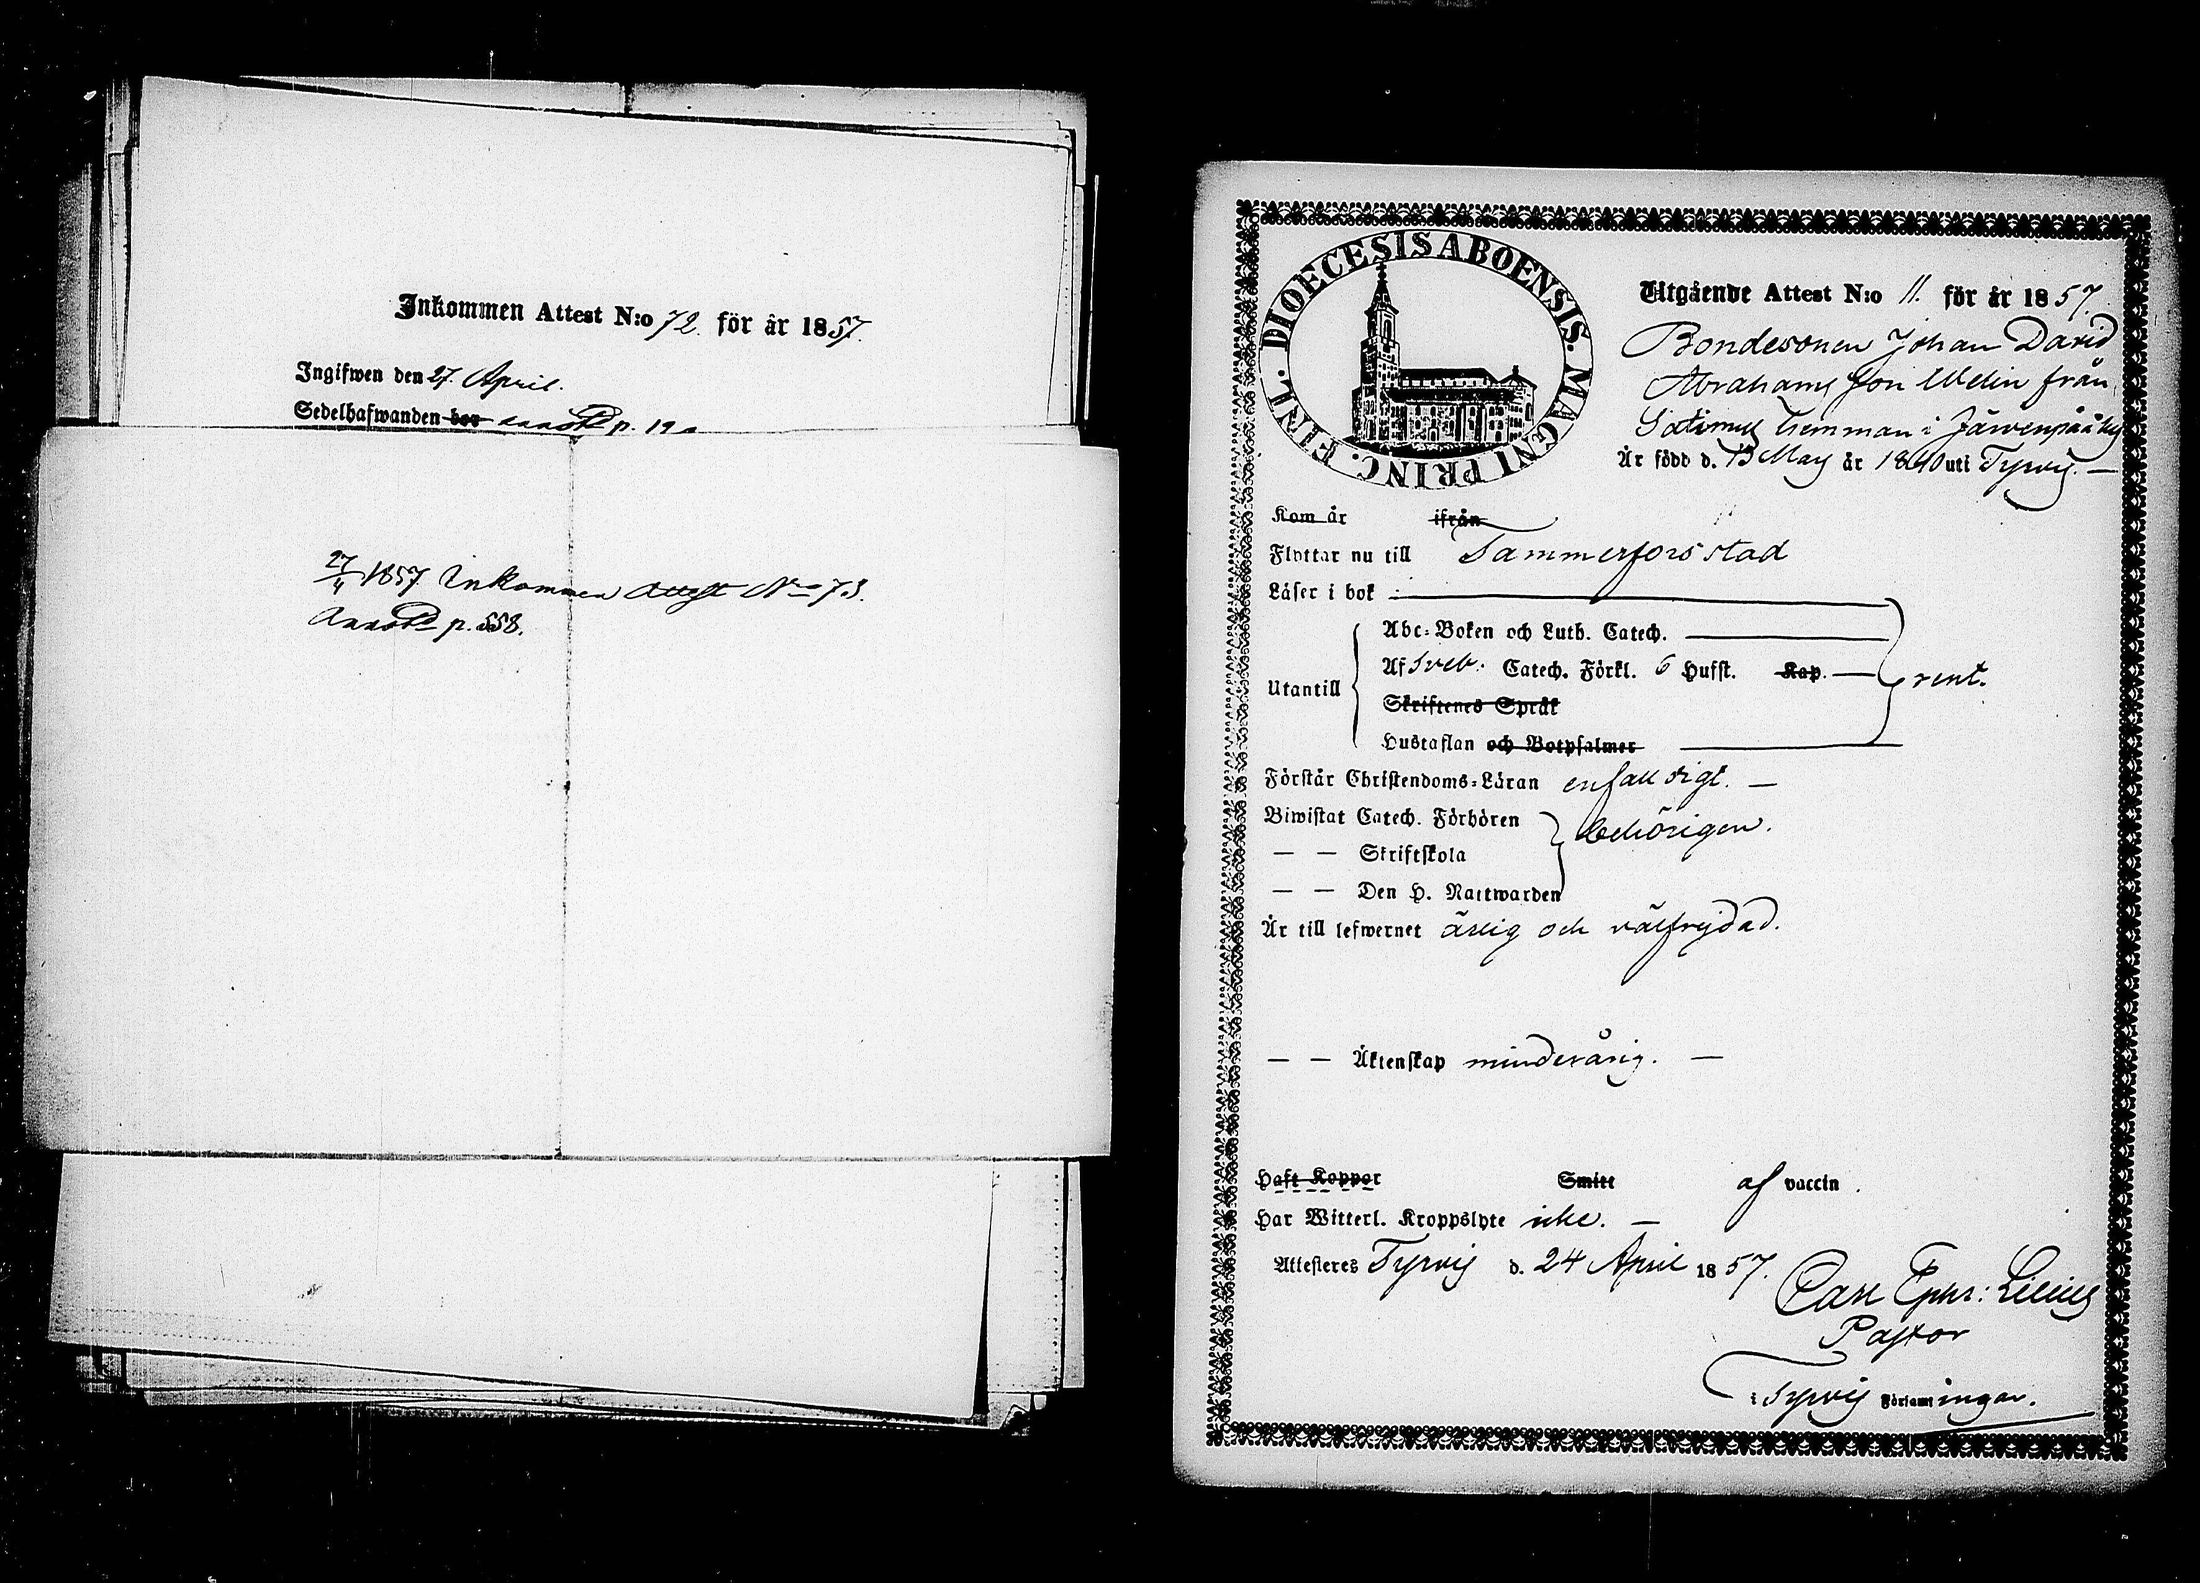 Inkommen Attest N:o 72. för år 1857.
Ingifwen den 27. April.
Sedelhafwanden bor annotd p. 19
27/4 1857 Inkommen Attest No 73.
Annotd p. 558.
DIOECESIS ABOENSIS. MAGNI PRINC. FINL.
Utgående Attest N:o 11. för år 1857.
Bondesonen Johan David
Abrahams son Welin från
hemman i Järvenpää by
Är född d. 13 Maij år 1840 uti Tyrvis. —
Kom år ifrån
Flyttar nu till Tammerfors stad
Läser i bok
Abc-Boken och Luth. Catech.
Utantill
Af Sveb. Catech. Förkl. 6 Hufst. Kap. — rent.
Skriftenes Språk
Hustaflan och Botpsalmer
Förstår Christendoms-Läran enfaldigt. —
Biwistat Catech. Förhören
behörigen.
— — Skriftskola
— — Den H. Nattwarden
Är till lefwernet ärlig och välfrejdad.
— — Äktenskap minderårig. —
Haft Koppor Smitt af vaccin.
Har Witterl. Kroppslyte icke. —
Attesteres Tyrvis d. 24 April 1857.
Carl Ephr: Lilius
Pastor
i Tyrvis Församlingar.